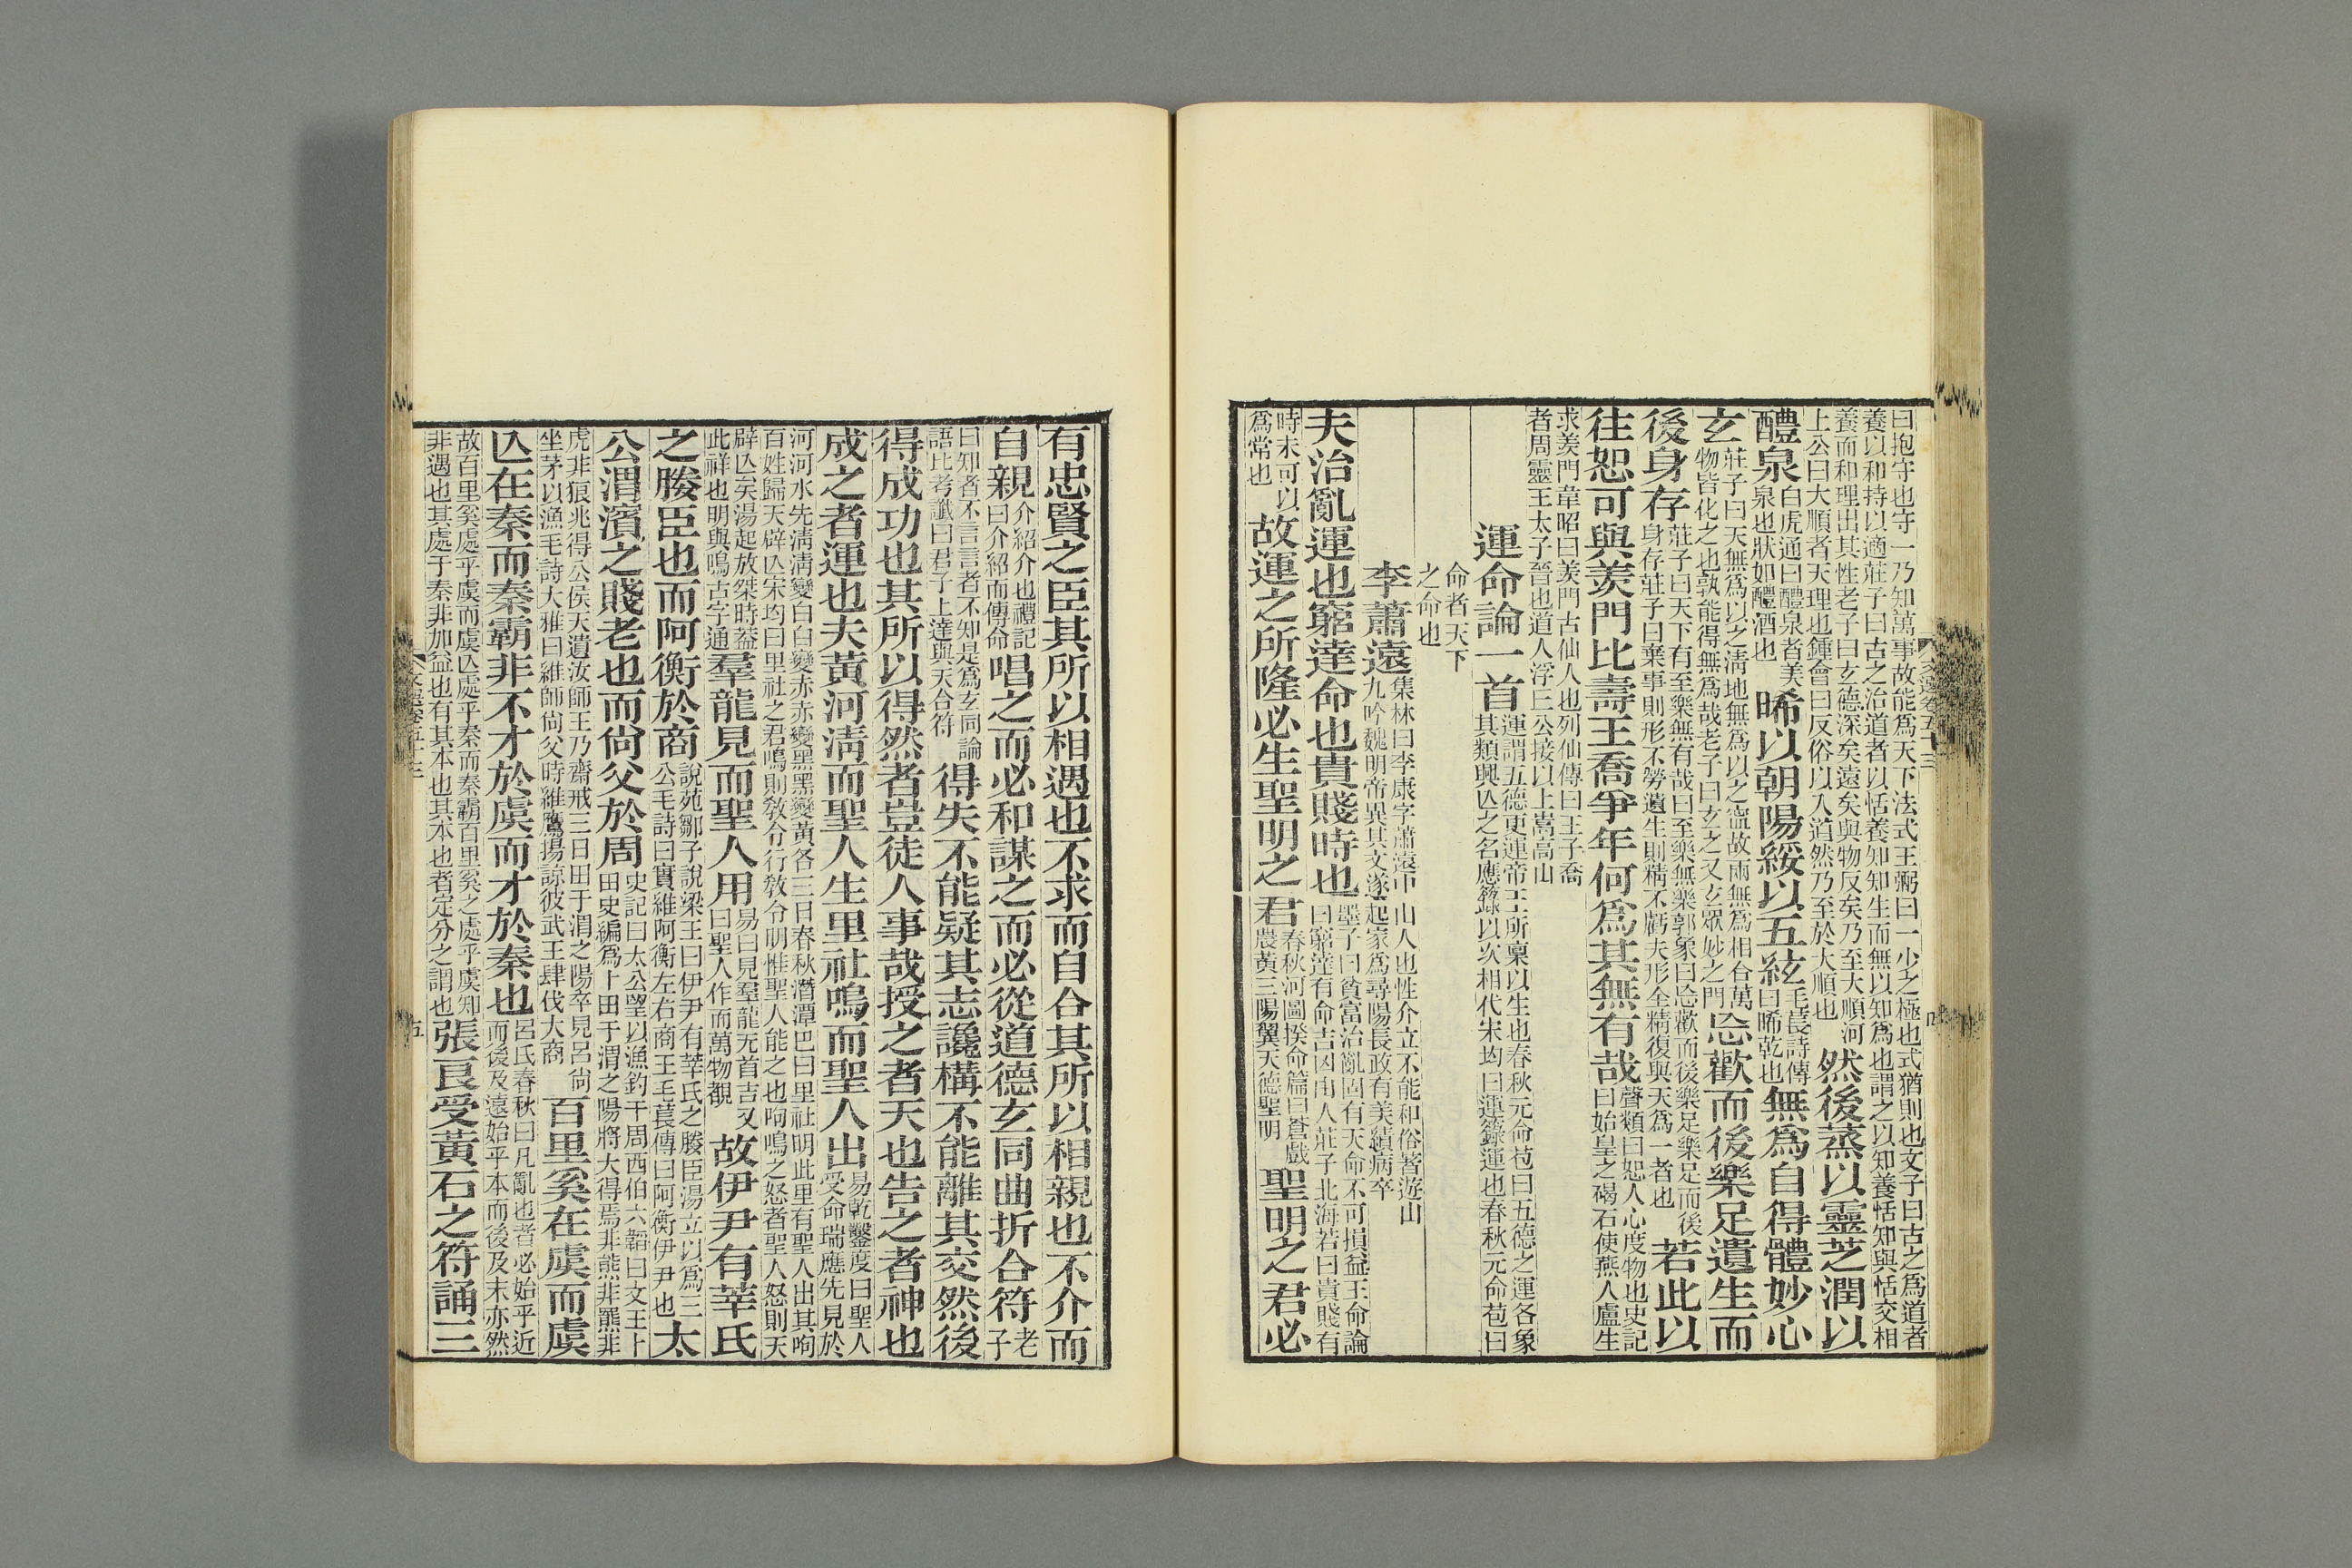 曰抱守也守一乃知萬事故能爲天下法式王弼曰一少之極也式猶則也文子曰古之爲道者
養以和持以適莊子曰古之治道者以恬養知知生而無以知爲也謂之以知養恬知與恬交相
養而和理出其性老子曰玄德深矣遠矣與物反矣乃至大順河上公曰大順者天理也鍾會曰反俗以入道然乃至於大順也然後蒸以靈芝潤以
醴泉白虎通曰醴泉者美泉也狀如醴酒也晞以朝陽綏以五絃毛萇詩傳曰晞乾也無爲自得體妙心
玄莊子曰天無爲以之淸地無爲以之寧故兩無爲相合萬物皆化之也孰能得無爲哉老子曰玄之又玄眾妙之門忘歡而後樂足遺生而
後身存莊子曰天下有至樂無有哉曰至樂無樂郭象曰忘歡而後樂足樂足而後身存莊子曰棄事則形不勞遺生則精不虧夫形全精復與天爲一者也若此以
往恕可與羨門比壽王喬爭年何爲其無有哉聲類曰恕人心度物也史記曰始皇之碣石使燕人盧生
求羨門韋昭曰羨門古仙人也列仙傳曰王子喬者周靈王太子晉也道人浮丘公接以上嵩高山
運命論一首運謂五德更運帝王所稟以生也春秋元命苞曰五德之運各象其類興亾之名應籙以次相代宋均曰運籙運也春秋元命苞曰
命者天下之命也
李蕭遠集林曰李康字蕭遠中山人也性介立不能和俗著遊山九吟魏明帝異其文遂起家爲尋陽長政有美績病卒
夫治亂運也窮達命也貴賤時也墨子曰貧富治亂固有天命不可損益王命論曰窮達有命吉凶由人莊子北海若曰貴賤有
時未可以爲常也故運之所隆必生聖明之君春秋河圖揆命篇曰蒼戲農黃三陽翼天德聖明聖明之君必
有忠賢之臣其所以相遇也不求而自合其所以相親也不介而
自親介紹介也禮記曰介紹而傳命唱之而必和謀之而必從道德玄同曲折合符老子
曰知者不言言者不知是爲玄同論語比考讖曰君子上達與天合符得失不能疑其志讒構不能離其交然後
得成功也其所以得然者豈徒人事哉授之者天也告之者神也
成之者運也夫黃河淸而聖人生里社鳴而聖人出易乾鑿度曰聖人受命瑞應先見於
河河水先淸淸變白白變赤赤變黑黑變黃各三日春秋潛潭巴曰里社明此里有聖人出其呴百姓歸天辟亾宋均曰里社之君鳴則敎令行敎令明惟聖人能之也呴鳴之怒者聖人怒則天
辟亾矣湯起放桀時葢此祥也明與鳴古字通羣龍見而聖人用易曰見羣龍无首吉又曰聖人作而萬物覩故伊尹有莘氏
之媵臣也而阿衡於商說苑鄒子說梁王曰伊尹有莘氏之媵臣湯立以爲三公毛詩曰實維阿衡左右商王毛萇傳曰阿衡伊尹也太
公渭濱之賤老也而尙父於周史記曰太公望以漁釣干周西伯六韜曰文王卜田史編爲卜田于渭之陽將大得焉非熊非羆非
虎非狼兆得公侯天遺汝師王乃齋戒三日田于渭之陽卒見呂尙坐茅以漁毛詩大雅曰維師尙父時維鷹揚諒彼武王肆伐大商百里奚在虞而虞
亾在秦而秦霸非不才於虞而才於秦也呂氏春秋曰凡亂也者必始乎近而後及遠始乎本而後及末亦然
故百里奚處乎虞而虞亾處乎秦而秦霸百里奚之處乎虞知非遇也其處于秦非加益也有其本也其本也者定分之謂也張良受黃石之符誦三
五